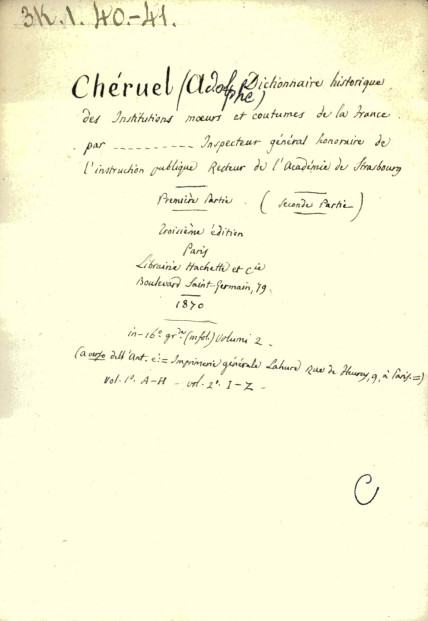 3K.1.40.-41.
Chéruel (Adolphe) Dictionnaire historique
des Institutions mœurs et coutumes de la France
par __________ Inspecteur général honoraire de
l'instruction publique Recteur de l'Académie de Strasbourg
Première Partie. (Seconde Partie)
Troisième édition
Paris
Librairie Hachette et Cie
Boulevard Saint-Germain, 79.
1870
in-16º gr. (in fol.) Volumi 2.
(a verso dell'Ant. è:= Imprimerie générale Lahure rue de Fleurus, 9, à Paris.=)
Vol. 1º. A-H - vol. 2º. I-Z -
C